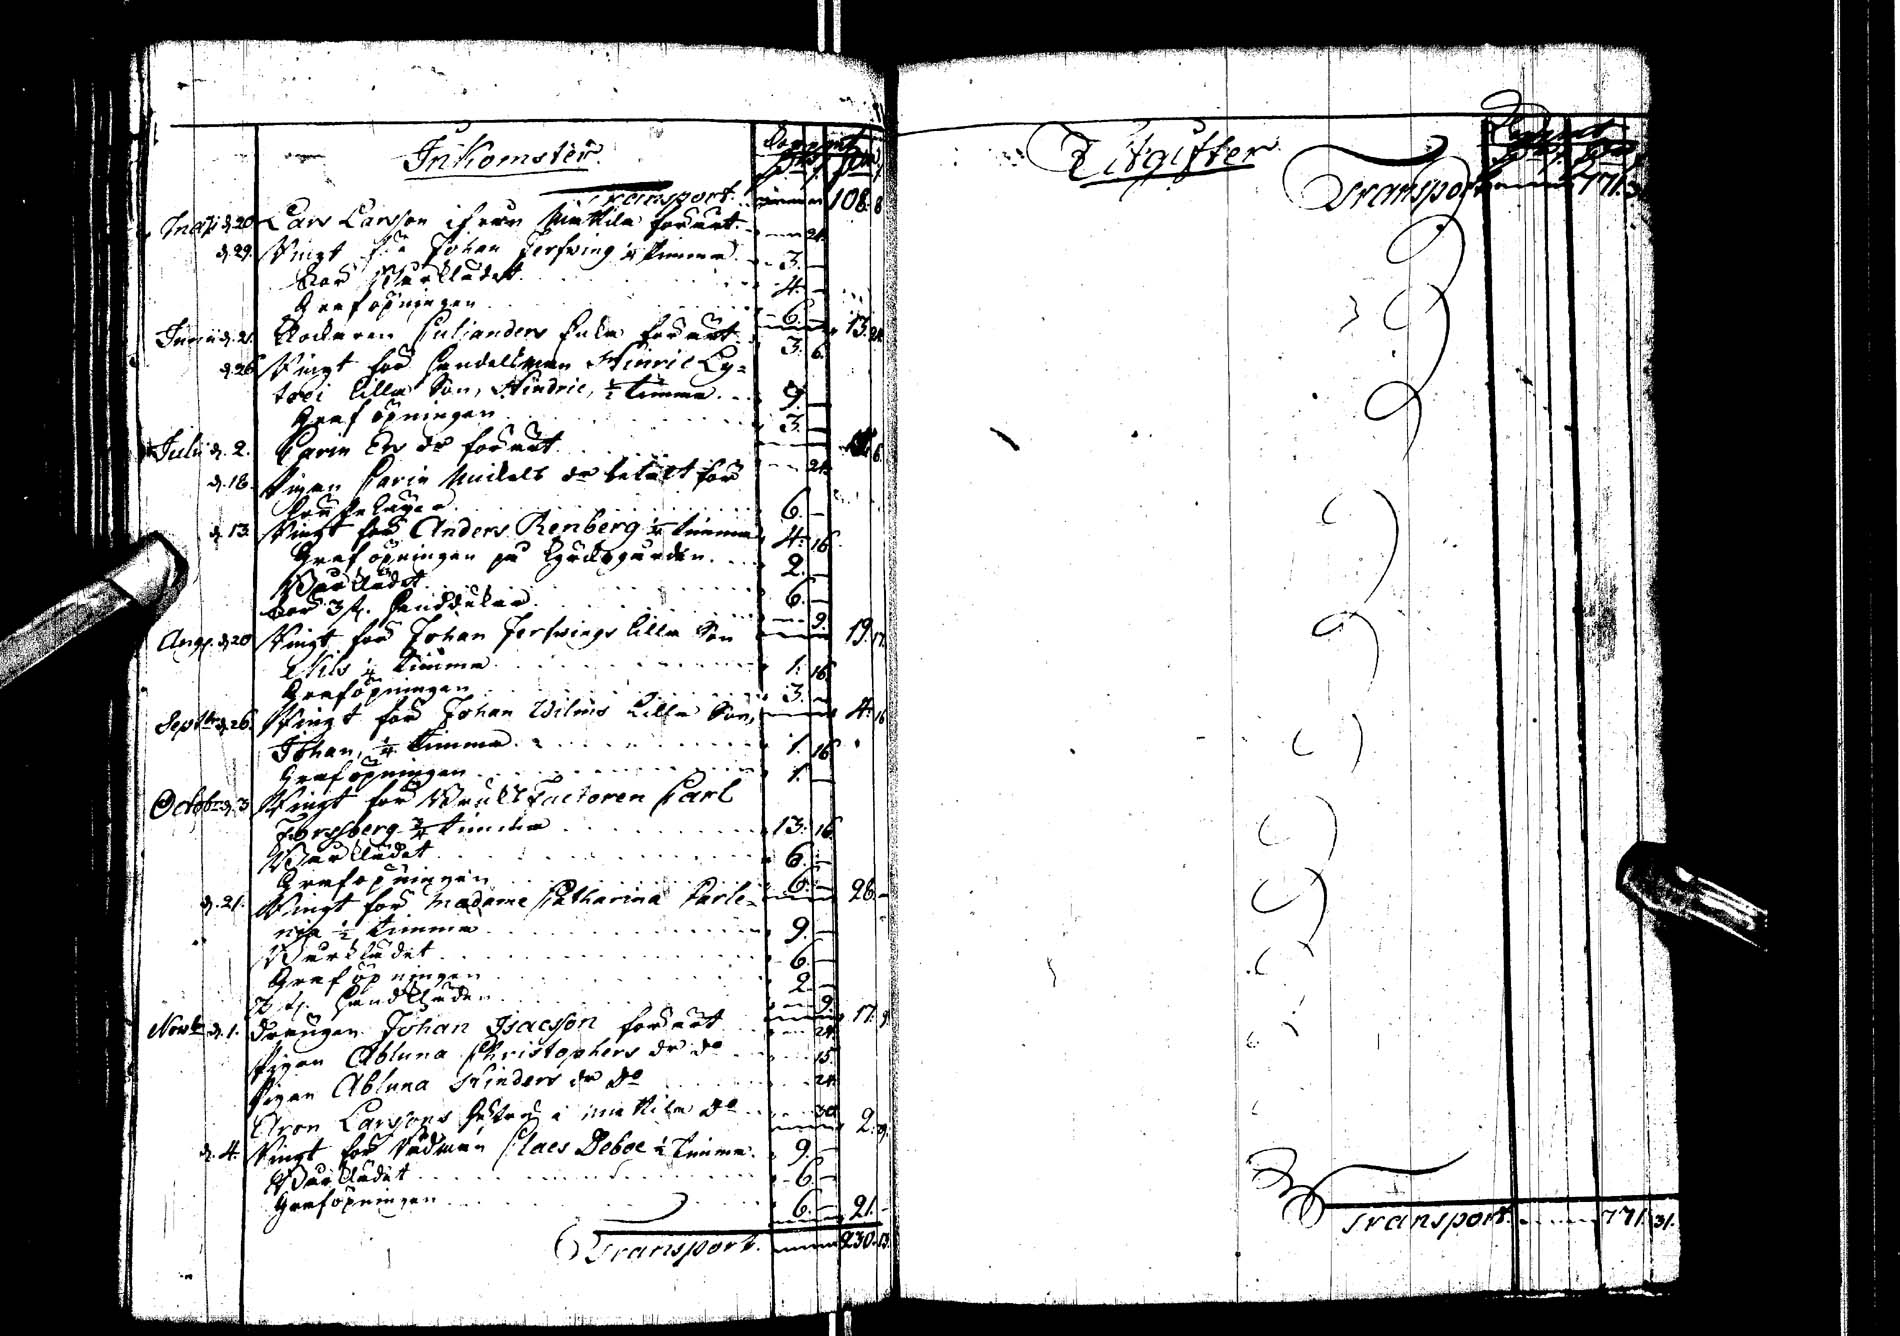 Inkomster.
Transport. 108. 8
Maji d. 20. Lars Larsson ifrån Mattila förärt. 24.
d. 29. Ringt för Johan Ferfving ¼ timma 3. —
För Bårklädet 4. —
Graföpningen 6. — 13. 24.
Junii d. 21. Klockaren Julianders Enka förärt 3. 6.
d. 26. Ringt för Handelsman Hinric Ly=
tori lilla Son, Hindric, ½ timma 9. —
Graföpningen 3. — 6.
Julii d. 2. Carin Ers dr förärt 24.
d. 18. Pigan Carin Mickels dr betalt för
6. —
d. 13. Ringt för Anders Renberg ¼ timma 4. 16.
Graföpningen på Kyrkogården 2. —
Bårklädet 6. —
För 3 st. Handdukar 9. 19. 17.
Aug. d. 20 Ringt för Johan Ferfvings lilla Son
Nils ¼ timma 1. 16.
Graföpningen 3. — 4. 16
Septbr. d. 26. Ringt för Johan Wilms lilla Son,
Johan, ¼ timma 1. 16
Graföpningen 1. —
Octobr. d. 3 Ringt för Bruks Factoren Carl
Forssberg ¾ timma 13. 16
Bårklädet 6. —
Graföpningen 6. — 26. —
d. 21. Ringt för Madame Catharina Carle=
nia ½ timma 9. —
Bårklädet 6. —
Graföpningen 2. —
3 st. Handkläden 9. 17. 9.
Novbr. d. 1. Drengen Johan Isacsson förärt 24.
Pigan Abluna Christophers dr do 15.
Pigan Abluna Hinders dr do 24.
Aron Larssons Hustru i Mattila do 30. 2. 9.
d. 4. Ringt för Rådman Claes Deboe ½ Timma 9. —
Bårklädet 6. —
Graföpningen 6. — 21. —
Transport. 230. 13.
Utgifter
Transport 771. 31
Transport. 771. 31.